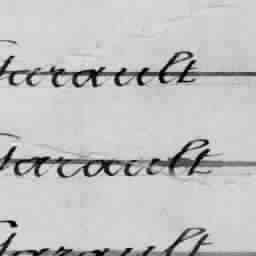 Garault
Garault
Garault